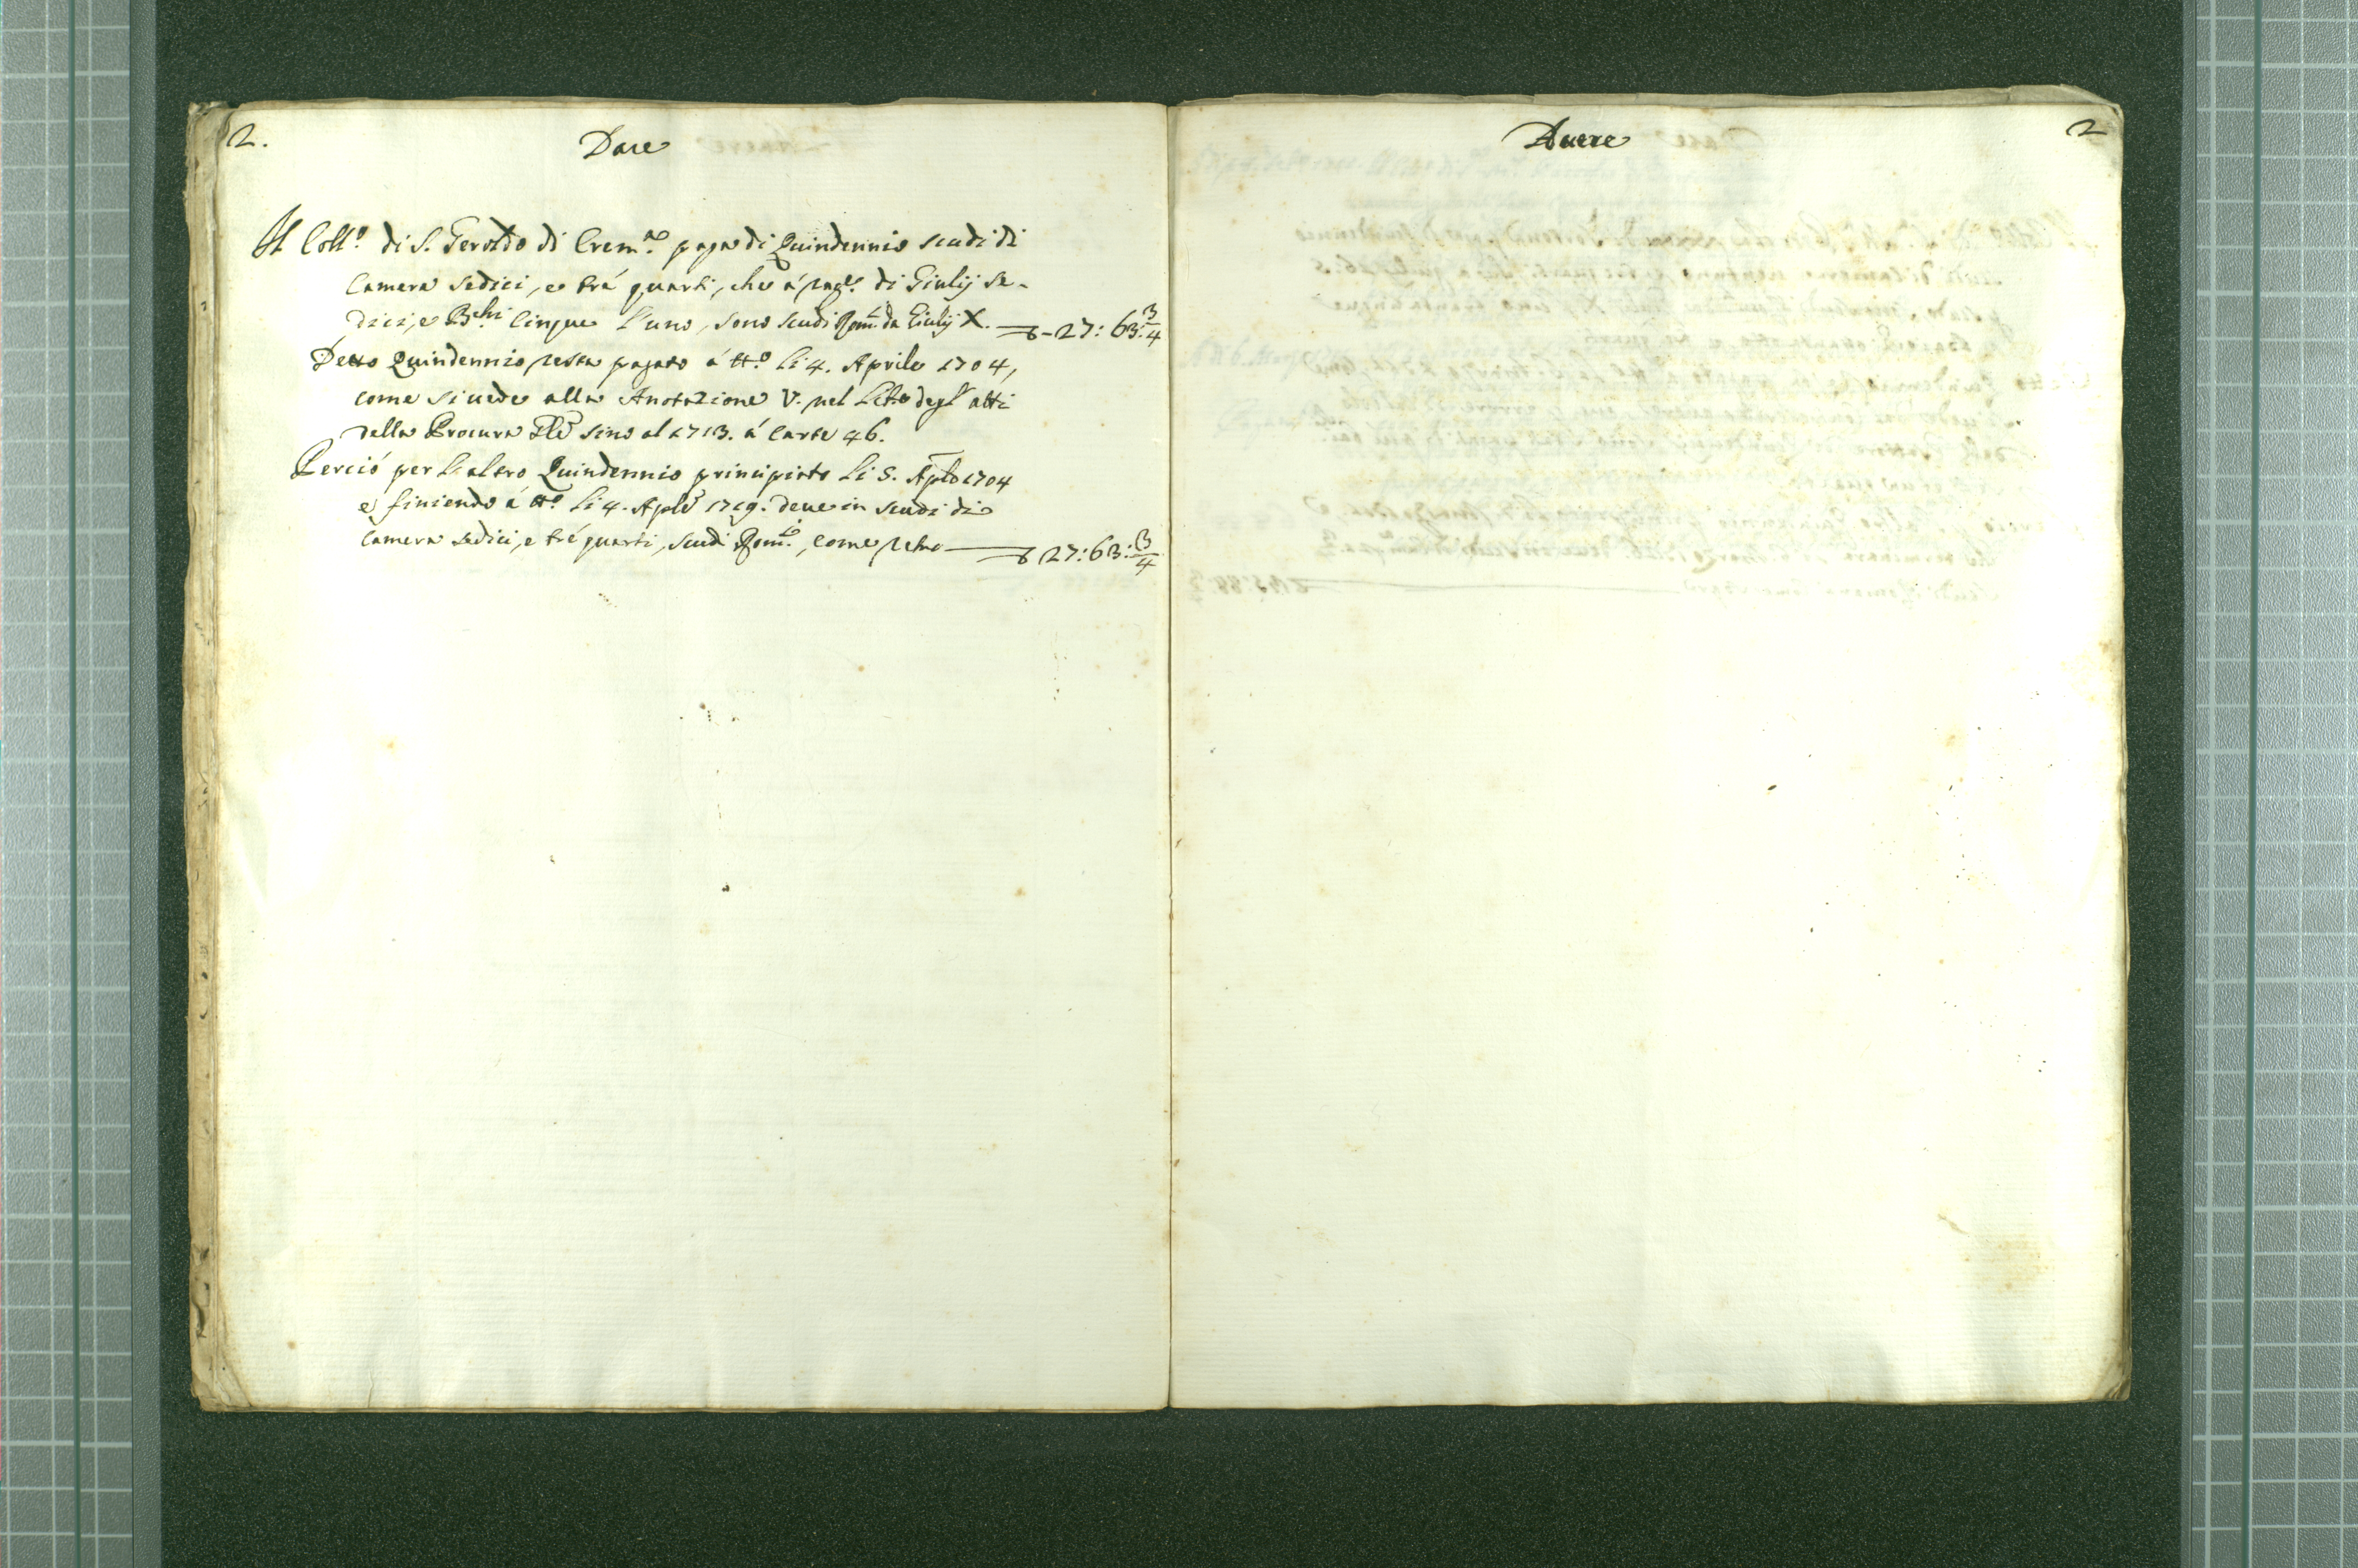 2.
Dare
Il Coll.º di S. Geroldo di Crem.ª paga di Quindennio scudi di
Camera sedici, e trè quarti, che à rag.e di Giulij se-
dici, e B.chi Cinque l'uno, sono scudi Rom.i da Giulij X. — 27: 63: 3/4
Detto Quindennio resta pagato à tt.º li 4. Aprile 1704,
come si uede alla Anotazione V. nel Libro degl'atti
della Procura Gle sino al 1713. à Carte 46.
Perciò per l'altro Quindennio principiato li 5. Aple 1704
e finiendo à tt.º li 4. Aple 1719. deue in scudi di
Camera sedici, e trè quarti, scudi Rom.i, come retro — 27: 63: 3/4
Auere
2